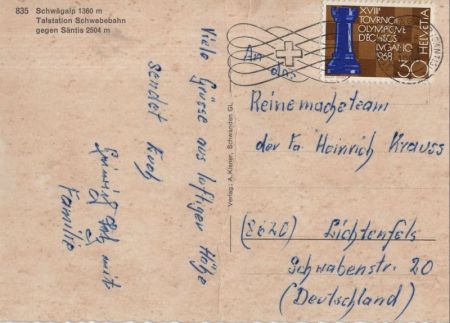 835 Schwägalp 1360 m
Talstation Schwebebahn
gegen Säntis 2504 m
Viele Grüsse aus luftiger Höhe
sendet Euch
mit
Familie
Verlag: A. Kleiner, Schwanden GL
XVIIIe
TOURNOI
OLYMPIQUE
D'ÉCHECS
LUGANO
1968
HELVETIA
30
An
das
Reinemacheteam
der Fa Heinrich Krauss
(8620) Lichtenfels
Schwabenstr. 20
(Deutschland)